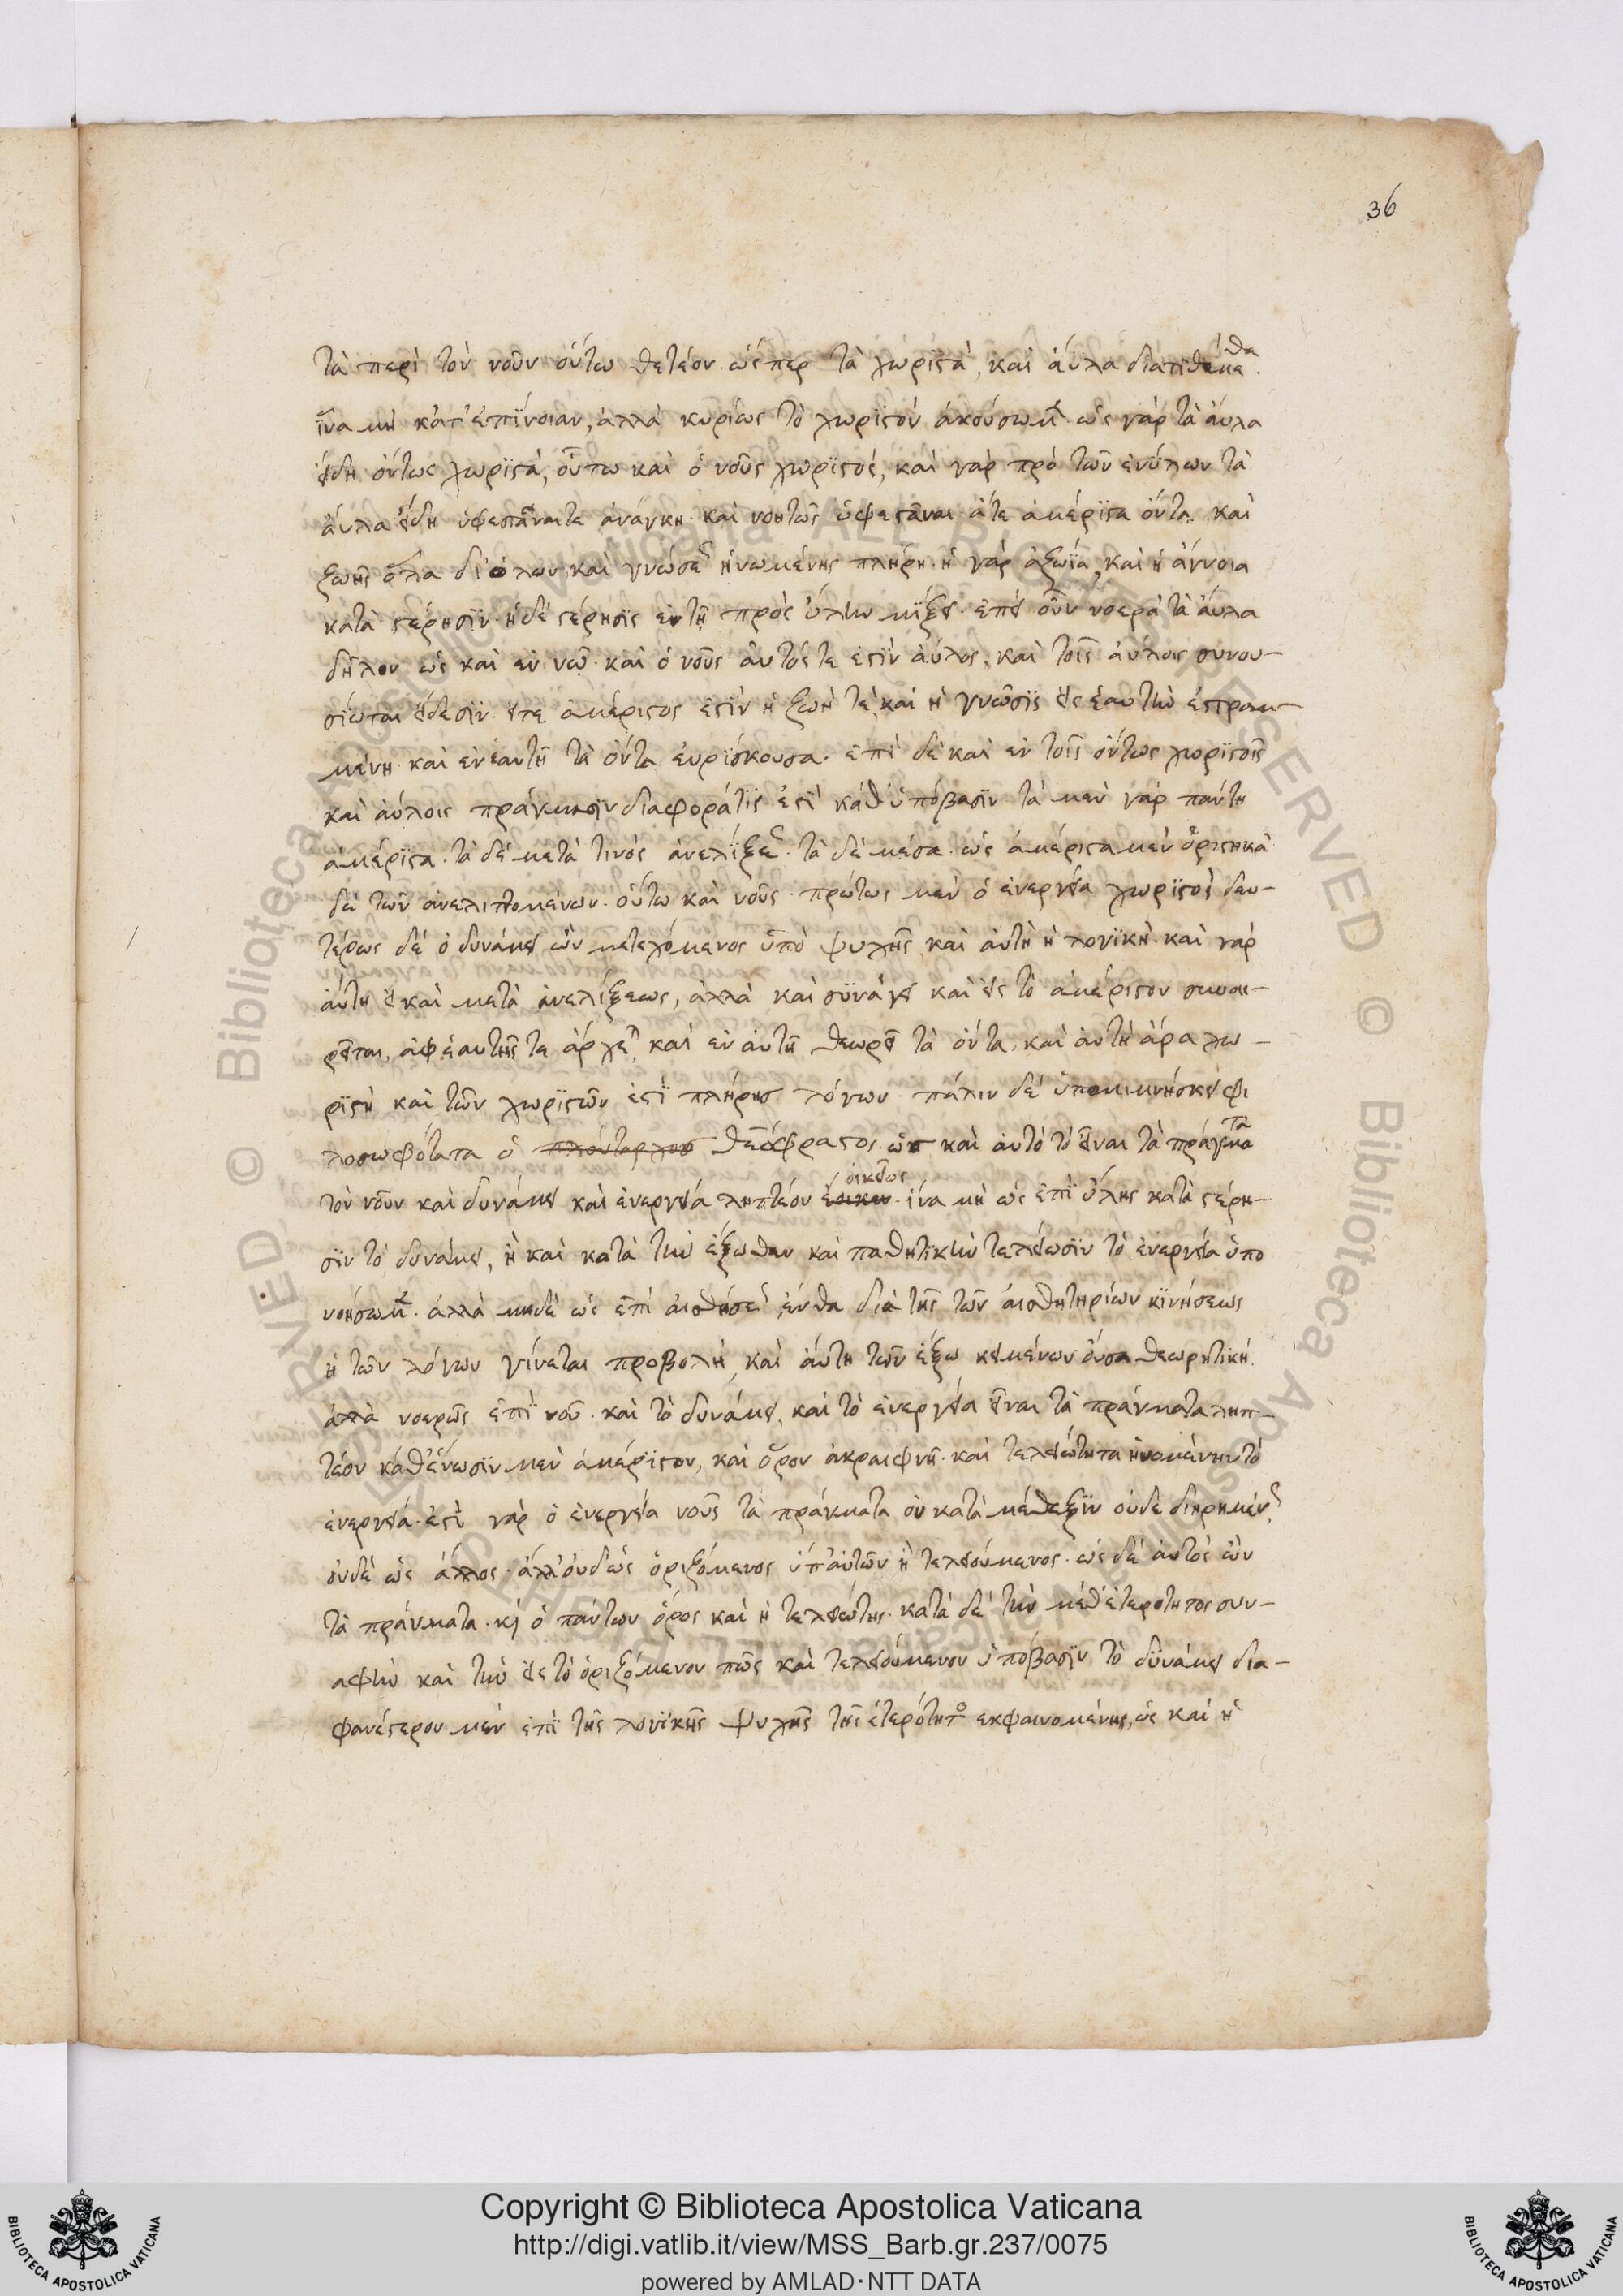 36
τὰ περὶ τὸν νοῦν οὕτω θετέον ὥσπερ τὰ χωριστά, καὶ ἄϋλα διατιθέμεθα.
ἵνα μὴ κατ' ἐπίνοιαν, ἀλλὰ κυρίως τὸ χωριστὸν ἀκούσωμεν. ὡς γὰρ τὰ ἄυλα
εἴδη ὄντως χωριστὰ, οὕτω καὶ ὁ νοῦς χωριστός, καὶ γὰρ πρὸ τῶν ἐνύλων τὰ
ἄυλα εἴδη ὑφεστάναι τε ἀνάγκη. καὶ νοητῶς ὑφεστάναι. ἅτε ἀμέριστα ὄντα. καὶ
ζωῆς ὅλα δι' ὅλων καὶ γνώσεως ἡνωμένης πλήρη. ἡ γὰρ ἀζωΐα, καὶ ἡ ἄγνοια
κατὰ στέρησιν. ἡ δὲ στέρησις ἐν τῇ πρὸς ὕλην μίξει. ἐπεὶ οὖν νοερὰ τὰ ἄυλα
δῆλον ὡς καὶ ἐν νῷ. καὶ ὁ νοῦς αὐτός τε ἐστὶν ἄυλος, καὶ τοῖς ἀύλοις συνου-
σίωται εἴδεσιν. εἴτε ἀμέριστος ἐστὶν ἡ ζωή τε, καὶ ἡ γνῶσις εἰς ἑαυτὴν ἐστραμ-
μένη καὶ ἐν ἑαυτῇ τὰ ὄντα εὑρίσκουσα. ἐπεὶ δὲ καὶ ἐν τοῖς ὄντως χωριστοῖς
καὶ ἀύλοις πράγμασιν διαφορά τίς ἐστὶ καθ' ὑπόβασιν. τὰ μὲν γὰρ πάντη
ἀμέριστα. τὰ δὲ μετὰ τινὸς ἀνελίξεως. τὰ δὲ μέσα. ὡς ἀμέριστα μὲν ὁριστικὰ
δὲ τῶν ἀνελιττομένων. οὕτω καὶ νοῦς. πρώτως μὲν ὁ ἐνεργείᾳ χωριστὸς δευ-
τέρως δὲ ὁ δυνάμει ὢν μετεχόμενος ὑπὸ ψυχῆς καὶ αὐτὴ ἡ λογικὴ. καὶ γὰρ
αὕτη εἰ καὶ μετὰ ἀνελίξεως, ἀλλὰ καὶ συνάγει καὶ εἰς τὸ ἀμέριστον συναι-
ρεῖται, ἀφ' ἑαυτῆς τε ἄρχεται, καὶ ἐν αὑτῇ θεωρεῖ τὰ ὄντα. καὶ αὐτὴ ἄρα χω-
ριστὴ καὶ τῶν χωριστῶν ἐστὶ πλήρης λόγων. πάλιν δὲ ὑπομιμνήσκει φι
λοσωφότατα ὁ πλούταρχος θεόφραστος. ὡς καὶ αὐτὸ τὸ εἶναι τὰ πράγματα
τὸν νοῦν καὶ δυνάμει καὶ ἐνεργείᾳ ληπτέον οἰκείως. ἵνα μὴ ὡς ἐπὶ ὕλης κατὰ στέρη-
σιν τὸ δυνάμει, ἢ καὶ κατὰ τὴν ἔξωθεν καὶ παθητικὴν τελείωσιν τὸ ἐνεργείᾳ ὑπο
νοήσωμεν. ἀλλὰ μηδὲ ὡς ἐπὶ αἰσθήσεως ἔνθα διὰ τῆς τῶν αἰσθητηρίων κινήσεως
ἡ τῶν λόγων γίνεται προβολή, καὶ αὕτη τῶν ἔξω κειμένων οὖσα θεωρητική.
ἀλλὰ νοερῶς ἐπὶ νοῦ. καὶ τὸ δυνάμει, καὶ τὸ ἐνεργείᾳ εἶναι τὰ πράγματα ληπ-
τέον καθ' ἕνωσιν μὲν ἀμέριστον, καὶ ὅρον ἀκραιφνῆ. καὶ τελειότητα ἡνομένην τὸ
ἐνεργείᾳ. ἐστὶ γὰρ ὁ ἐνεργείᾳ νοῦς τὰ πράγματα οὐ κατὰ μέθεξιν οὐδὲ διῃρημένως,
οὐδὲ ὡς ἄλλος. ἀλλ' οὐδ' ὡς ὁριζόμενος ὑπ' αὐτῶν ἢ τελειούμενος. ὡς δὲ αὐτὸς ὢν
τὰ πράγματα. κὶ ὁ πάντων ὅρος καὶ ἡ τελειότης. κατὰ δὲ τὴν μεθ' ἑτερότητος συν-
αφὴν καὶ τὴν εἰς τὸ ὁριζόμενον πῶς καὶ τελειούμενον ὑπόβασιν τὸ δυνάμει δια-
φανέστερον μὲν ἐπὶ τῆς λογικῆς ψυχῆς τῆς ἑτερότητος ἐκφαινομένης, ὡς καὶ ἡ
Copyright © Biblioteca Apostolica Vaticana
http://digi.vatlib.it/view/MSS_Barb.gr.237/0075
powered by AMLAD·NTT DATA
BIBLIOTECA APOSTOLICA VATICANA
BIBLIOTECA APOSTOLICA VATICANA